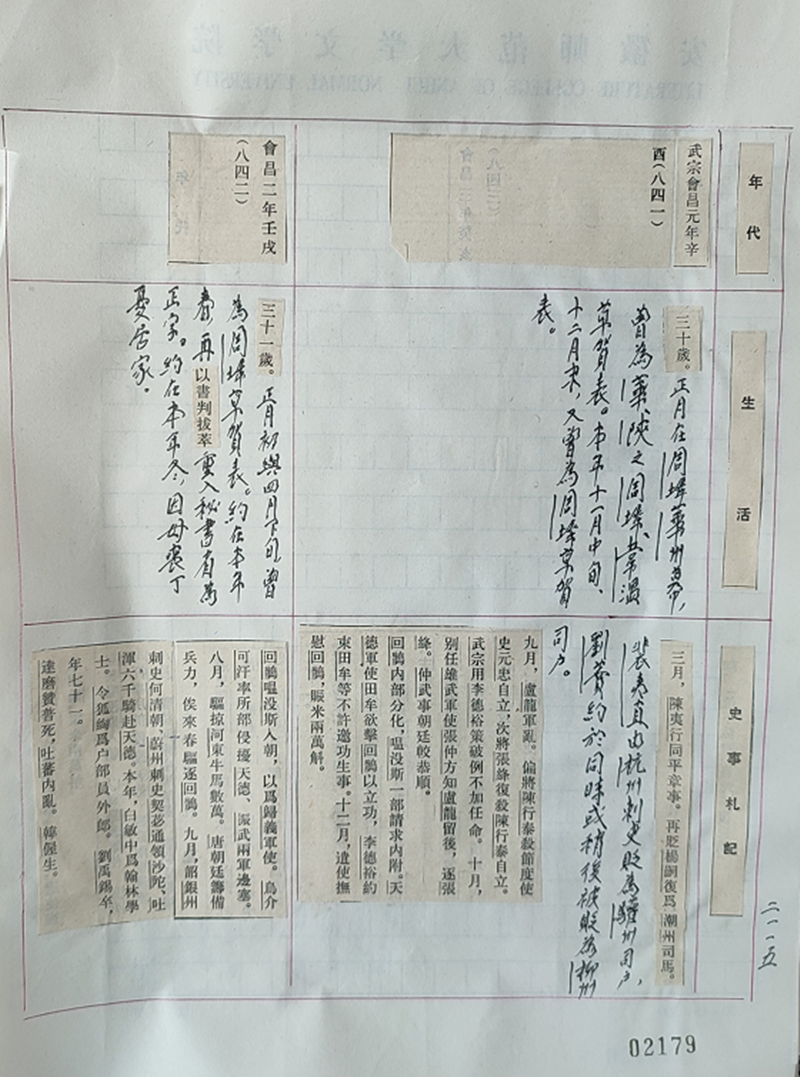 安徽师范大学文学院
LITERATURE COLLEGE OF ANHUI NORMAL UNIVERSITY
年代
武宗會昌元年辛
酉（八四一）
會昌二年壬戌
（八四二）
生活
三十歲。正月在周墀華州幕，
曾為華、陝之周墀、韋温
草賀表。本年十一月中旬、
十二月末，又曾為周墀草賀
表。
三十一歲。正月初與四月下旬曾
為周墀草賀表。約在本年
春再以書判拔萃重入秘書省為
正字。約在本年冬，因母喪丁
憂居家。
史事札記
三月，陳夷行同平章事。再貶楊嗣復爲潮州司馬。
裴夷直由杭州刺史貶為驩州司户，
劉蕡約於同時或稍後被貶為柳州
司户。
九月，盧龍軍亂。偏將陳行泰殺節度使
史元忠自立，次將張絳復殺陳行泰自立。
武宗用李德裕策破例不加任命。十月，
别任雄武軍使張仲方知盧龍留後，逐張
絳。仲武事朝廷較恭順。
回鶻内部分化，嗢没斯一部請求内附。天
德軍使田牟欲擊回鶻以立功，李德裕約
束田牟等不許邀功生事。十二月，遣使撫
慰回鶻，賑米兩萬斛。
回鶻嗢没斯入朝，以爲歸義軍使。烏介
可汗率所部侵擾天德、振武兩軍邊塞。
八月，驅掠河東牛馬數萬。唐朝廷籌備
兵力，俟來春驅逐回鶻。九月，詔銀州
刺史何清朝、蔚州刺史契苾通領沙陀、吐
渾六千騎赴天德。本年，白敏中爲翰林學
士。令狐綯爲户部員外郎。劉禹錫卒，
年七十一。
達磨贊普死，吐蕃内亂。韓偓生。
二一一五
02179